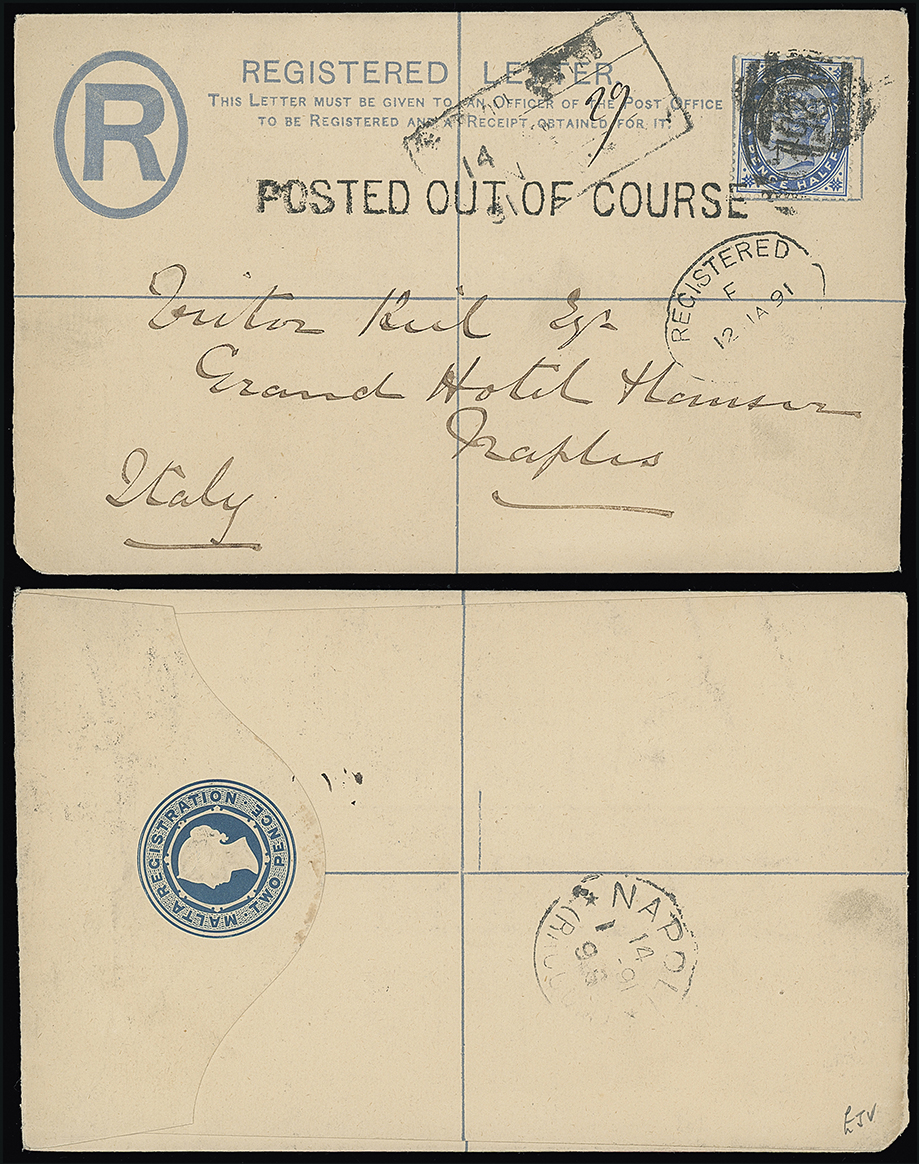 R
REGISTERED LETTER.
THIS LETTER MUST BE GIVEN TO AN OFFICER OF THE POST OFFICE
TO BE REGISTERED AND A RECEIPT OBTAINED FOR IT.
29
14
PENCE HALF
POSTED OUT OF COURSE
REGISTERED
F
12 JA 91
Victor Keil Esqr
Grand Hotel Hauser
Naples
Italy
MALTA REGISTRATION · TWO PENCE ·
NAPOLI
14
1 - 91
9 S